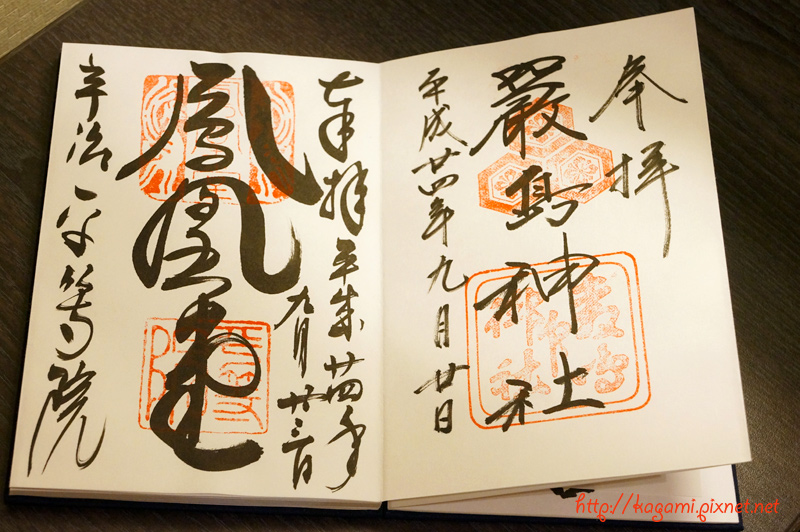 奉拝
嚴島神社
平成廿四年九月廿日
奉拝 平成廿四年
九月廿三日
鳳凰堂
宇治 平等院
http://kagami.pixnet.net